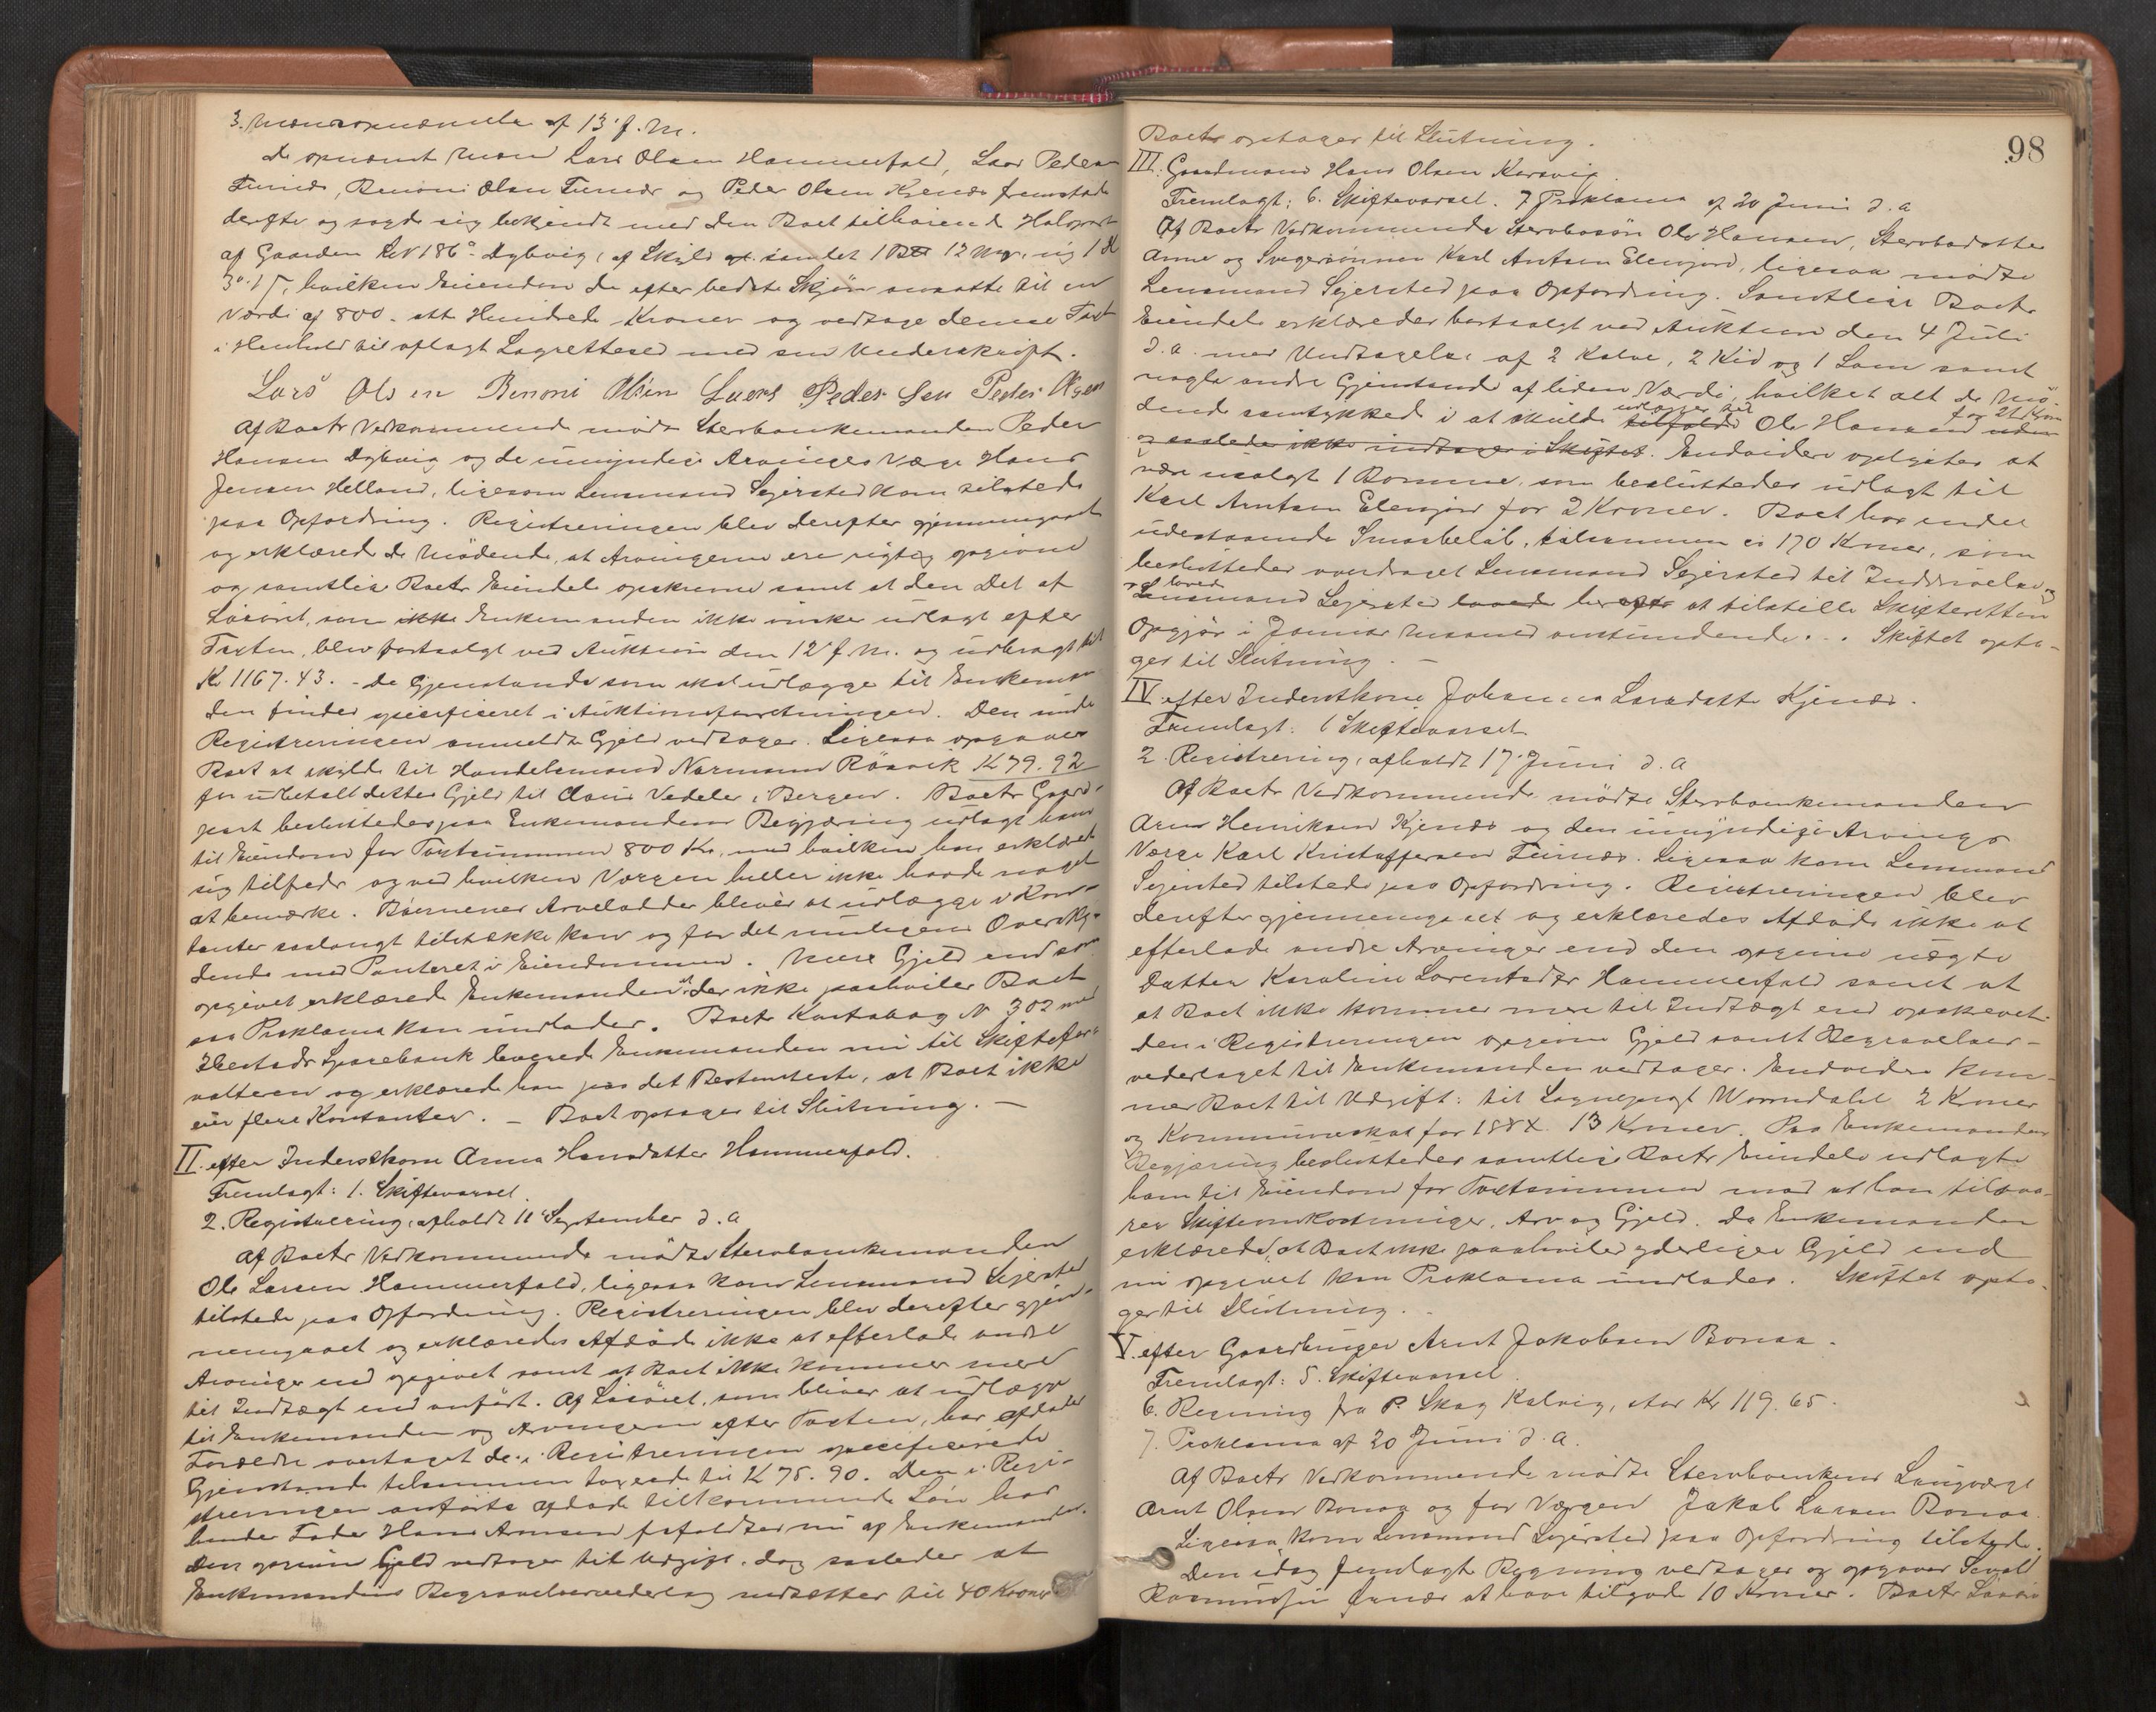 3. Mænsopnævnelse af 13' f. M.
De opnævnte Mænd Lars Olsen Hammerfald, Lars Pedersen
Furnæs, Benoni Olsen Furnæs og Peder Olsen Kjenæs fremstod
derefter og sagde sig bekjendt med den Boet tilhørende Halvpart
af Gaarden LN 186a Dybvig, af Skyld samlet 1 12 Mrk, ny 1 D
3 o. 17, hvilken Eiendom de efter bedste Skjøn ansatte til en
Værdi af 800 - otte Hundrede Kroner og vedtage denne Taxt
i Henhold til aflagt Lagrettesed med sin Underskrift.
Lars Olsen Benoni Olsen Lars Peder Sen Peder Olsen
Af Boets Vedkommende mødte Sterboenkemanden Peder
Hansen Dybvig og de umyndige Arvingers Værge Hans
Jensen Helland, ligesom Lensmand Sejersted kom tilstede
paa Opfordring. Registreringen blev derefter gjennemgaaet
og erklærede de Mødende, at Arvingerne ere rigtig opgivne
og samtlige Boets Eiendele opskrevne samt at den Del af
Løsøret, som ikke Enkemanden ikke ønsker udlagt efter
Taxten, blev bortsolgt ved Auktion den 12' f. M. og udbragt til
Kr 1167.43. - De Gjenstande som skal udlægges til Enkeman-
den findes specificeret i Auktionsforretningen. Den under
Registreringen anmeldte Gjeld vedtages. Ligesaa opgaves
Boet at skylde til Handelsmand Normann Røsvik K 79.92
for udbetalt dettes Gjeld til Claus Vedeler i Bergen. Boets Gaard-
part besluttedes paa Enkemandens Begjæring udlagt ham
til Eiendom for Taxtsummen 800 Kr, med hvilken han erklærede
sig tilfreds og ved hvilken Værgen heller ikke havde noget
at bemærke. Børnenes Arvelodder bliver at udlægge i Kon-
tanter saalangt tilstrække kan og for det muligens Oversky-
dende med Panteret i Eiendommen. Mere Gjeld end som
opgivet erklærede Enkemanden at der ikke paahviler Boet
saa Proklama kan undlades. Boets Kontabog N 302 med
Ibestads Sparebank leverede Enkemanden nu til Skiftefor-
valteren og erklærede han paa det Bestemteste, at Boet ikke
eier flere Kontanter. - Boet optages til Slutning. -
II. efter Inderstkone Anna Hansdatter Hammerfald.
Fremlagt: 1. Skiftevarsel.
2. Registrering, afholdt 11' September d. a
Af Boets Vedkommende mødte Sterboenkemanden
Ole Larsen Hammerfald, ligesaa kom Lensmand Sejersted
tilstede paa Opfordring. Registreringen blev derefter gjen-
nemgaaet og erklæredes Afdøde ikke at efterlade andre
Arvinger end opgivet samt at Boet ikke kommer mere
til Indtægt end anført. Af Løsøret, som bliver at udlægge
til Enkemanden og Arvingerne efter Taxten, har afdødes
Forældre overtaget de i Registreringen specificerede
Gjenstande tilsammen taxerede til K 75.90. Den i Regi-
streringen anførte afdøde tilkommende Løn hos
hendes Fader Hans Arnsen frafaldtes nu af Enkemanden.
Den opgivne Gjeld vedtages til Udgift, dog saaledes at
Enkemandens Begravelsesvederlag nedsættes til 40 Kroner
98
Boet optages til Slutning.
III. Gaardmand Hans Olsen Karsvig.
Fremlagt: 6. Skiftevarsel. 7. Proklama af 20 Juni d. a
Af Boets Vedkommende Sterbosøn Ole Hansen, Sterbodatter
Anne og Svigersønnen Karl Antsen Elevjord, ligesaa mødte
Lensmand Sejersted paa Opfordring. Samtlige Boets
Eiendele erklæredes bortsolgt ved Auktion den 4 Juli
d. a. med Undtagelse af 2 Kalve, 2 Kid og 1 Lam samt
nogle andre Gjenstande af liden Værdi, hvilket alt de Mø-
dende samtykkede i at skulde udlægges til tilfalde Ole Hansen for 21 Kroner uden
og saaledes ikke indtages i Skiftet. Endvidere oplystes at
være usolgt 1 Komme, som besluttedes udlagt til
Karl Arntsen Elevjord for 2 Kroner. Boet har endel
udestaaende Smaabeløb, tilsammen ca 170 Kroner, som
besluttedes overdraget Lensmand Sejersted til Inddrivelse og
lovede Lensmand Sejersted at tilstille Skifteretten
Opgjør i Januar Maaned anstundende. - Skiftet opta-
ges til Slutning. -
IV. efter Inderstkone Johanna Larsdatter Kjenæs.
Fremlagt: 1 Skiftevarsel
2. Registrering, afholdt 17 Juni d. a
Af Boets Vedkommende mødte Sterboenkemanden
Arne Henriksen Kjenæs og den umyndige Arvings
Værge Karl Kristoffersen Furnæs. Ligesaa kom Lensmand
Sejersted tilstede paa Opfordring. Registreringen blev
derefter gjennemgaaet og erklæredes Afdøde ikke at
efterlade andre Arvinger end den opgivne uægte
Datter Karoline Lorentsdtr Hammerfald samt at
at Boet ikke kommer mere til Indtægt end opskrevet.
Den i Registreringen opgivne Gjeld samt Begravelses-
vederlaget til Enkemanden vedtages. Endvidere kom-
mer Boet til Udgift: til Sogneprogt Worndahl 2 Kroner
og Kommuneskat for 188 13 Kroner. Paa Enkemandens
Begjæring besluttedes samtlige Boets Eiendele udlagte
ham til Eiendom for Taxtsummen mod at han tilsva-
rer Skifteomkostninger, Arv og Gjeld. Da Enkemanden
erklærede, at Boet ikke paahviler yderligere Gjeld end
nu opgivet kan Proklama undlades. Skiftet opta-
ges til Slutning. -
V. efter Gaardbruger Arnt Jakobsen Bonaa.
Fremlagt: 5. Skiftevarsel.
6. Regning fra P. Skog Kalvig, stor Kr 119.65.
7. Proklama af 20 Juni d. a.
Af Boets Vedkommende mødte Sterboenkens Laugværge
Arnt Olsen Bonaa og for Værgen Jakob Larsen Bonaa.
Ligesaa kom Lensmand Sejersted paa Opfordring tilstede.
Den idag fremlagte Regning vedtages og opgaves Sevald
Rasmussen at have tilgode 10 Kroner. Boets Løsøre